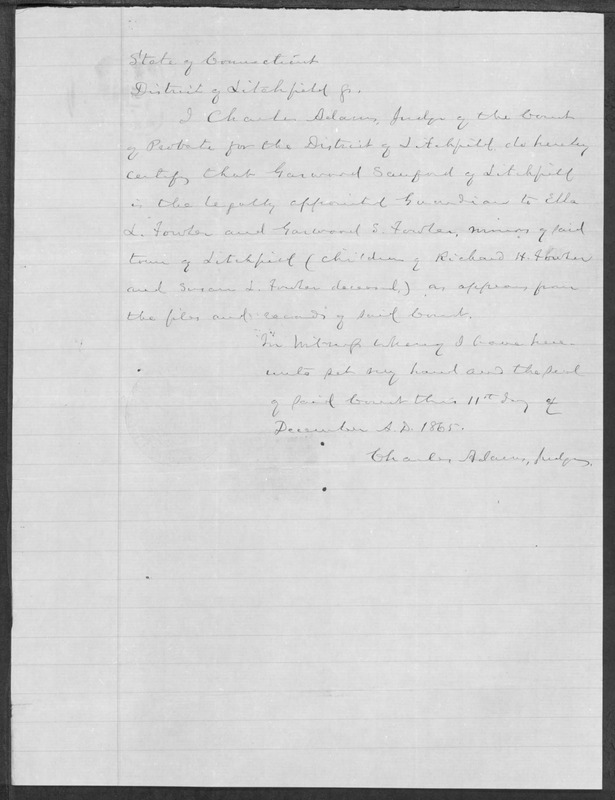 State of Connecticut
District of Litchfield ss.
I Charles Adams, Judge of the Court
of Probate for the District of Litchfield, do hereby
certify that Garwood Sanford of Litchfield
is the legally appointed Guardian to Ella
L. Fowler and Garwood S. Fowler, minors of said
town of Litchfield (children of Richard H. Fowler
and Susan L. Fowler deceased,) as appears from
the files and records of said Court.
In Witness whereof I have here-
unto set my hand and the seal
of said Court this 11th day of
December A.D. 1865.
Charles Adams, Judge,